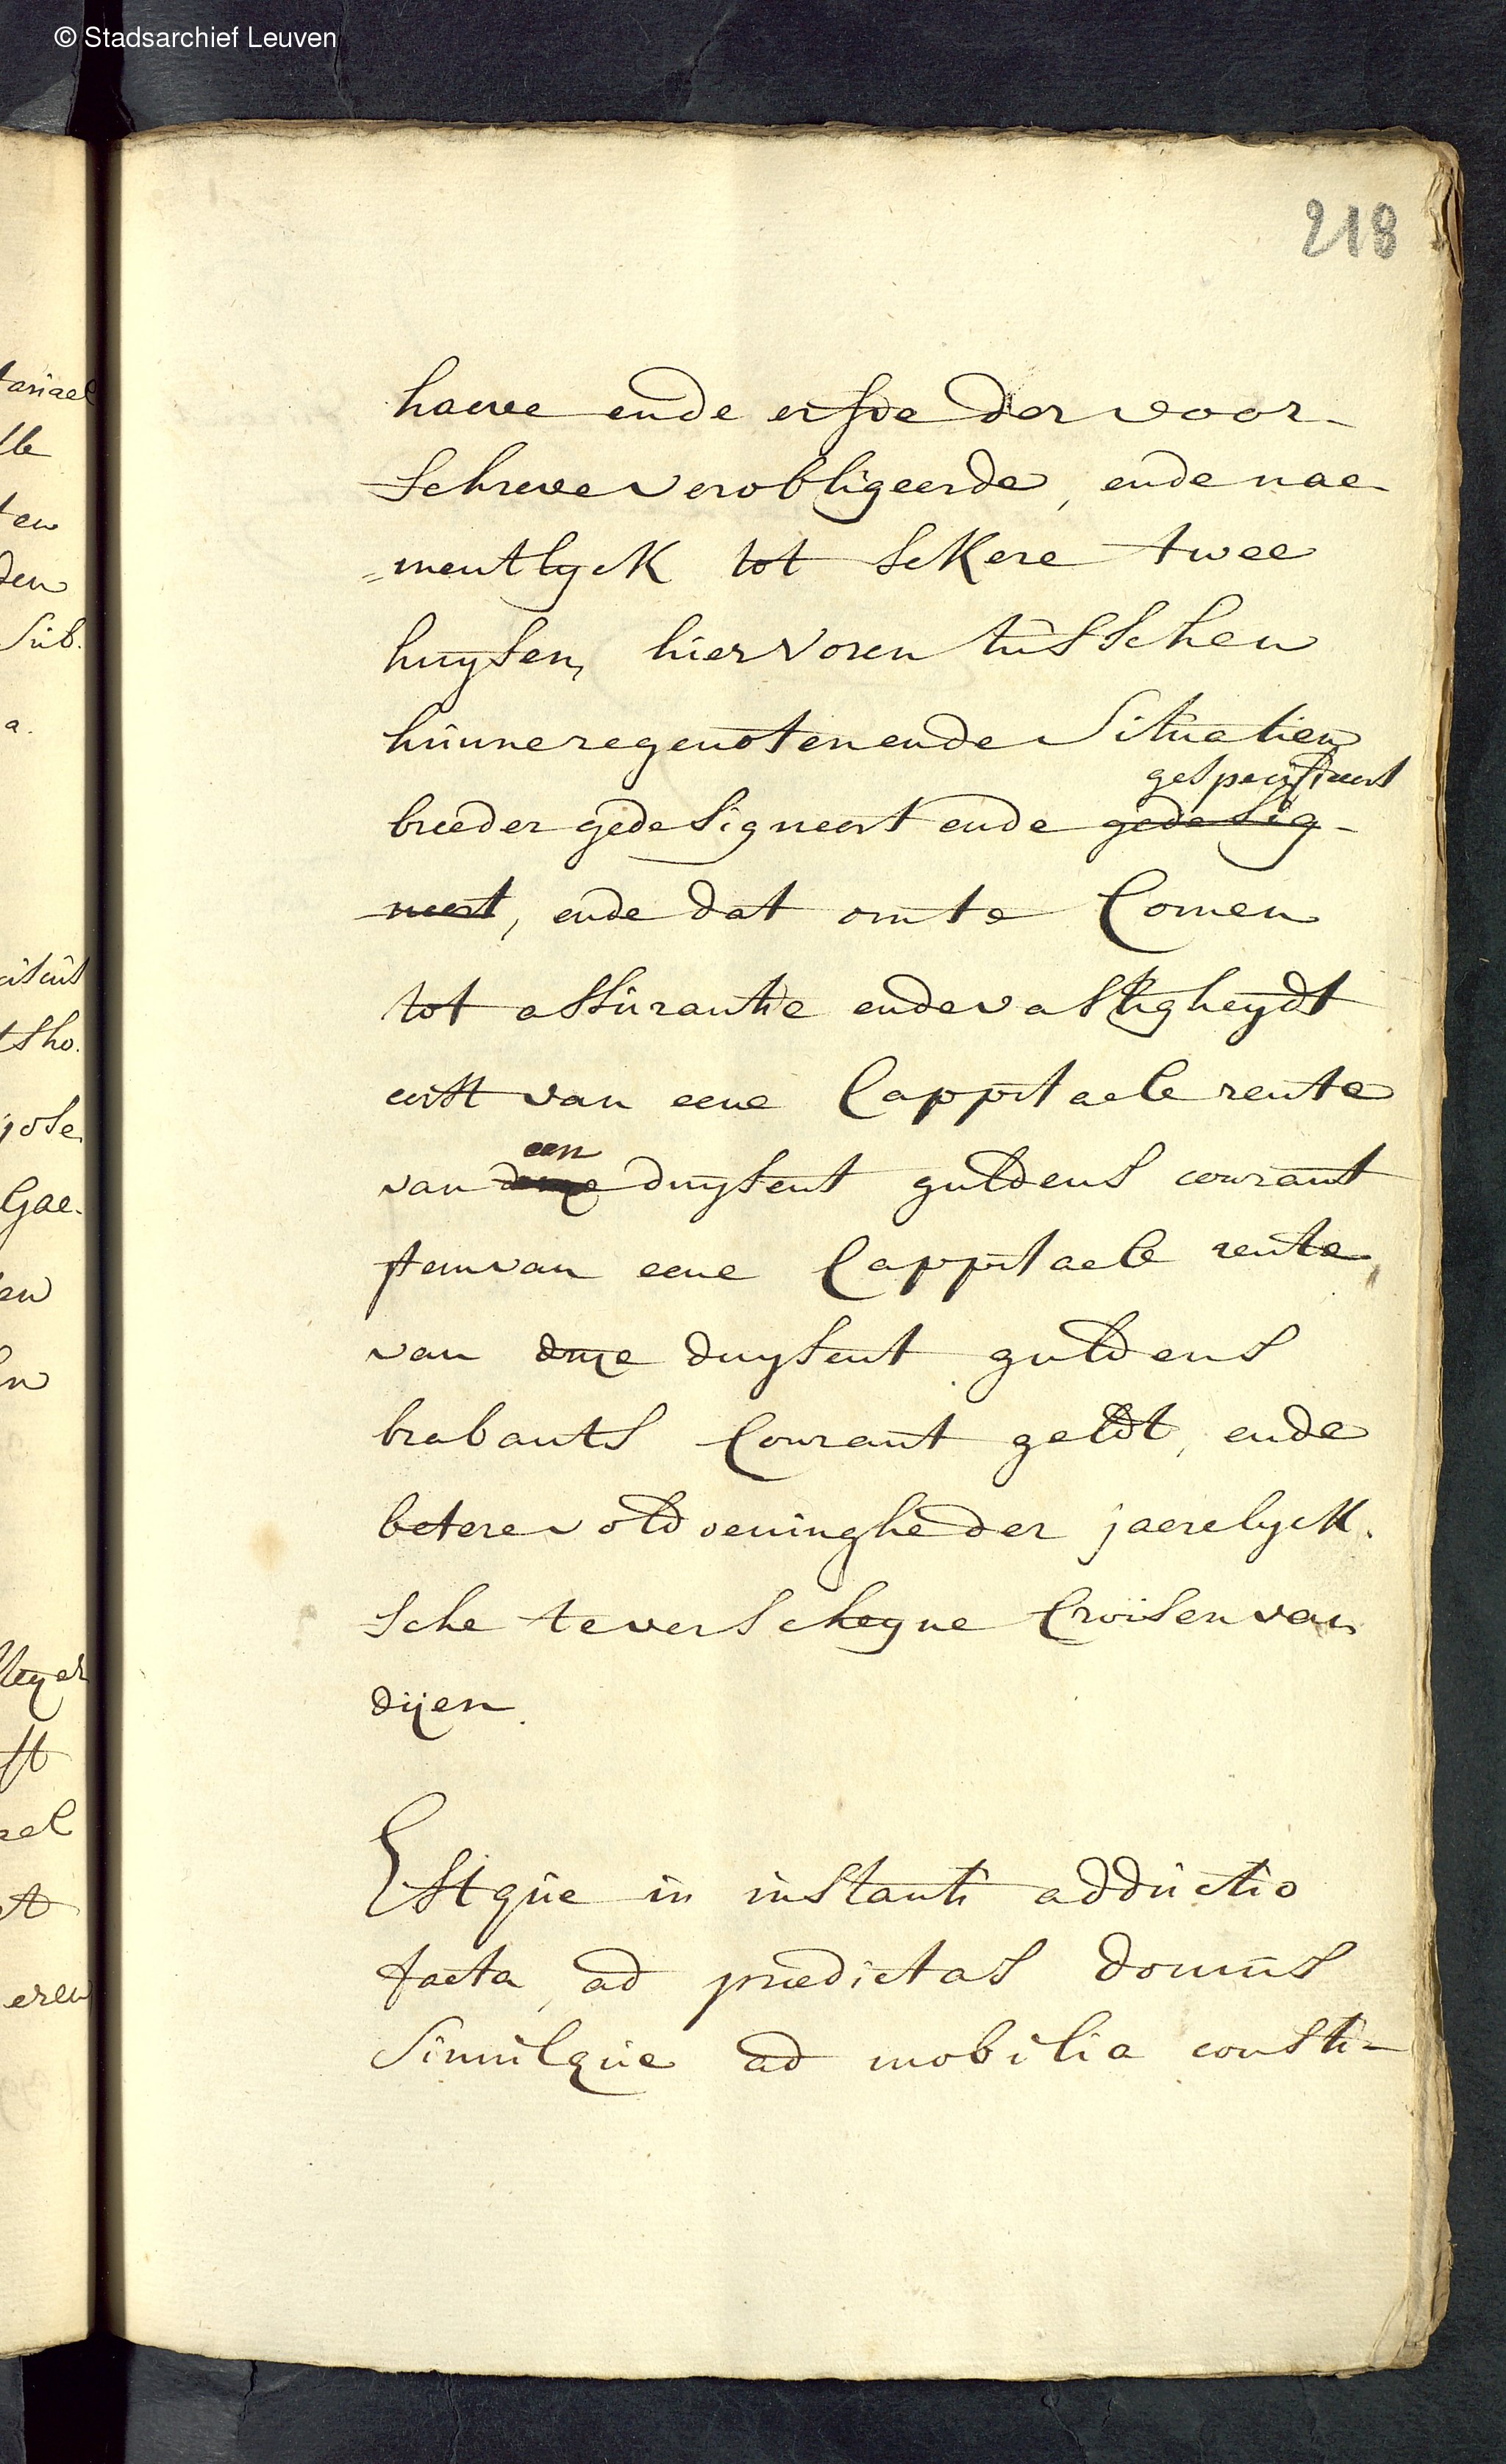 © Stadsarchief Leuven
218
haeve ende erfve der voor-
schreve verobligeerde, ende nae-
=mentlyck tot sekere twee
huysen, hiervoren tusschen
hunne regenoten ende situatien
gespecificeert
breeder gedesigneert ende gedesig-
neert, ende dat om te Comen
tot assurantie ende vastigheydt
erst van eene Cappitaele rente
een
van duysent guldens courant
item van eene Cappitaele rente,
van dry duysent guldens
brabants Courant geldt, ende
betere voldoeninghe der jaerelyck-
sche te verscheyne Croisen van
dijen.
Estque in instanti adductio
facta, ad praedictas domus
simulque ad mobilia consti-
tariael
lle
ten
den
sub.
a.
tsho.
jose
Gae-
en
Meyer
ft
rel
eren